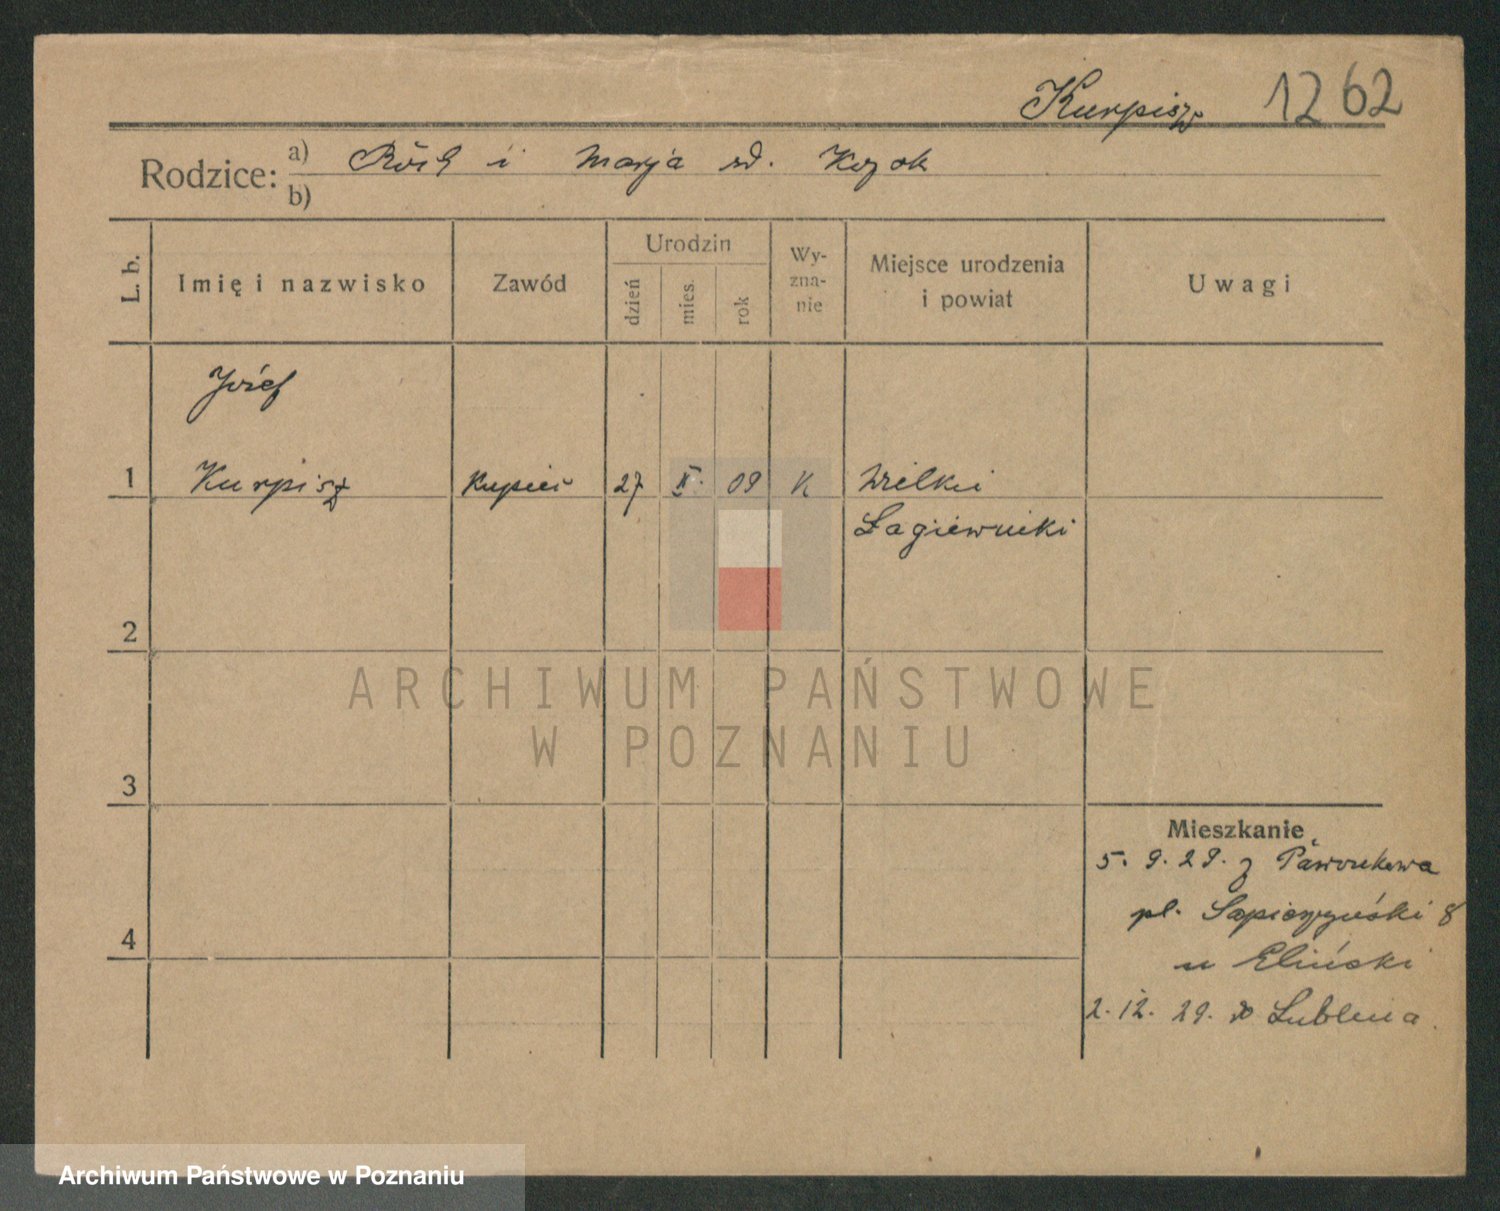 Kurpisz 1262
Rodzice: a) Roch i Marja zd. Kozak
b)
L. b.
Imię i nazwisko
Zawód
Urodzin
dzień
mies.
rok
Wy-
zna-
nie
Miejsce urodzenia
i powiat
Uwagi
Józef
1 Kurpisz kupiec 27 II. 09 K Wielkie
Łagiewniki
2
3
4
Mieszkanie
5. 9. 29. z
pl. Sapieżyński 8
u Eliński
2. 12. 29. do Lublina.
ARCHIWUM PAŃSTWOWE
W POZNANIU
Archiwum Państwowe w Poznaniu